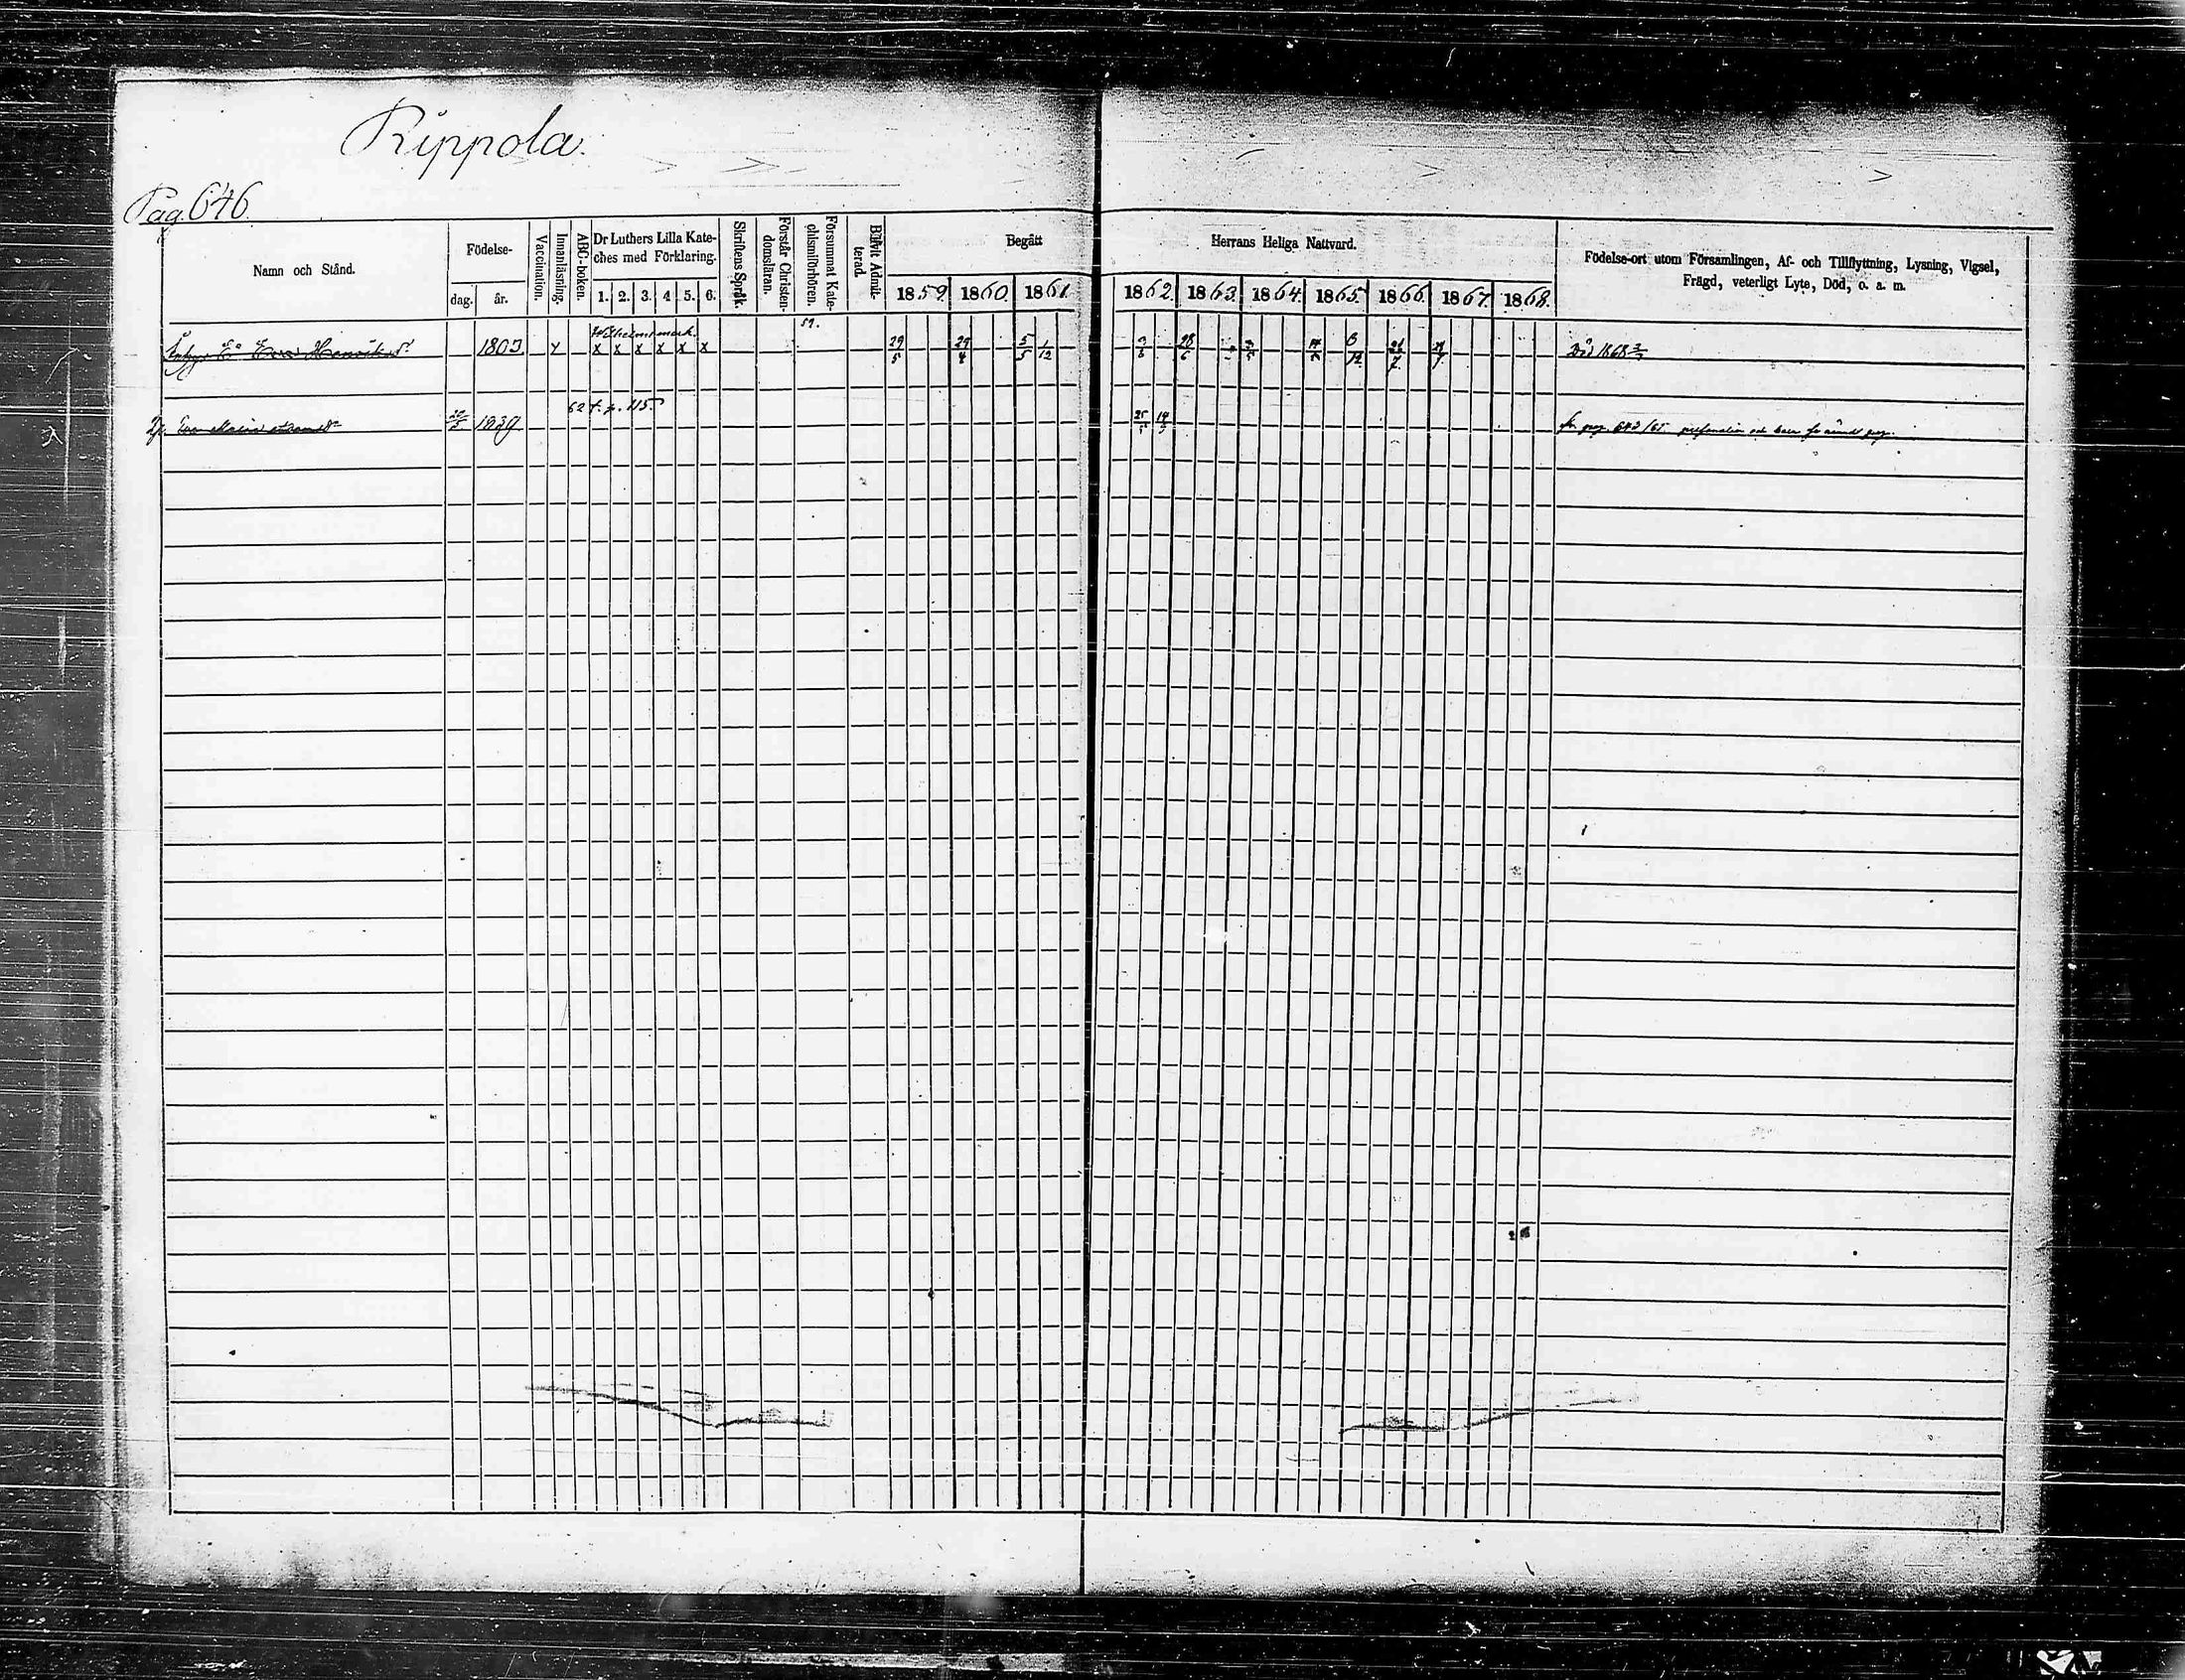 Rippola.
Pag. 646.
Namn och Stånd.
Födelse-
dag.
år.
Vaccination.
Innanläsning.
ABC-boken.
Dr Luthers Lilla Kate-
ches med Förklaring.
1. 2. 3. 4 5. 6.
Skriftens Språk.
Förstår Christen-
domsläran.
Försummat Kate-
chismiförhören.
Blifvit Admit-
terad.
Begått Herrans Heliga Nattvard.
1859. 1860. 1861. 1862. 1863. 1864. 1865. 1866. 1867. 1868.
Födelse-ort utom Församlingen, Af- och Tillflyttning, Lysning, Vigsel,
Frägd, veterligt Lyte, Död, o. a. m.
59.
E:a Eva 1803 x x x x x x 29/5 29/4 5/5 1/12 28/6 Död 1868
62 t. p. 115.
Eva 1839 25/5 fr. pag. 643/65